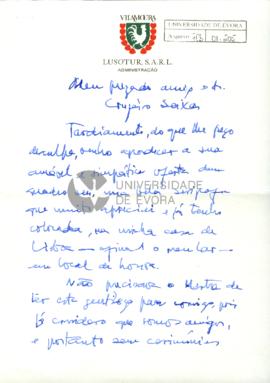 VILAMOURA
UNIVERSIDADE DE ÉVORA
Arquivo
LUSOTUR, S.A.R.L.
ADMINISTRAÇÃO
Meu prezado amigo e Sr.
Cruzeiro Seixas
Tardiamente, do que lhe peço
desculpa, venho agradecer a sua
amável e simpática oferta dum
quadro seu,
que muito apreciei e já tenho
colocada, na minha casa de
Lisboa
em local de honra.
UNIVERSIDADE
DE ÉVORA
Não precisava o Mestre de
ter esta gentileza para comigo, pois
já considero que somos amigos,
e portanto sem cerimónias